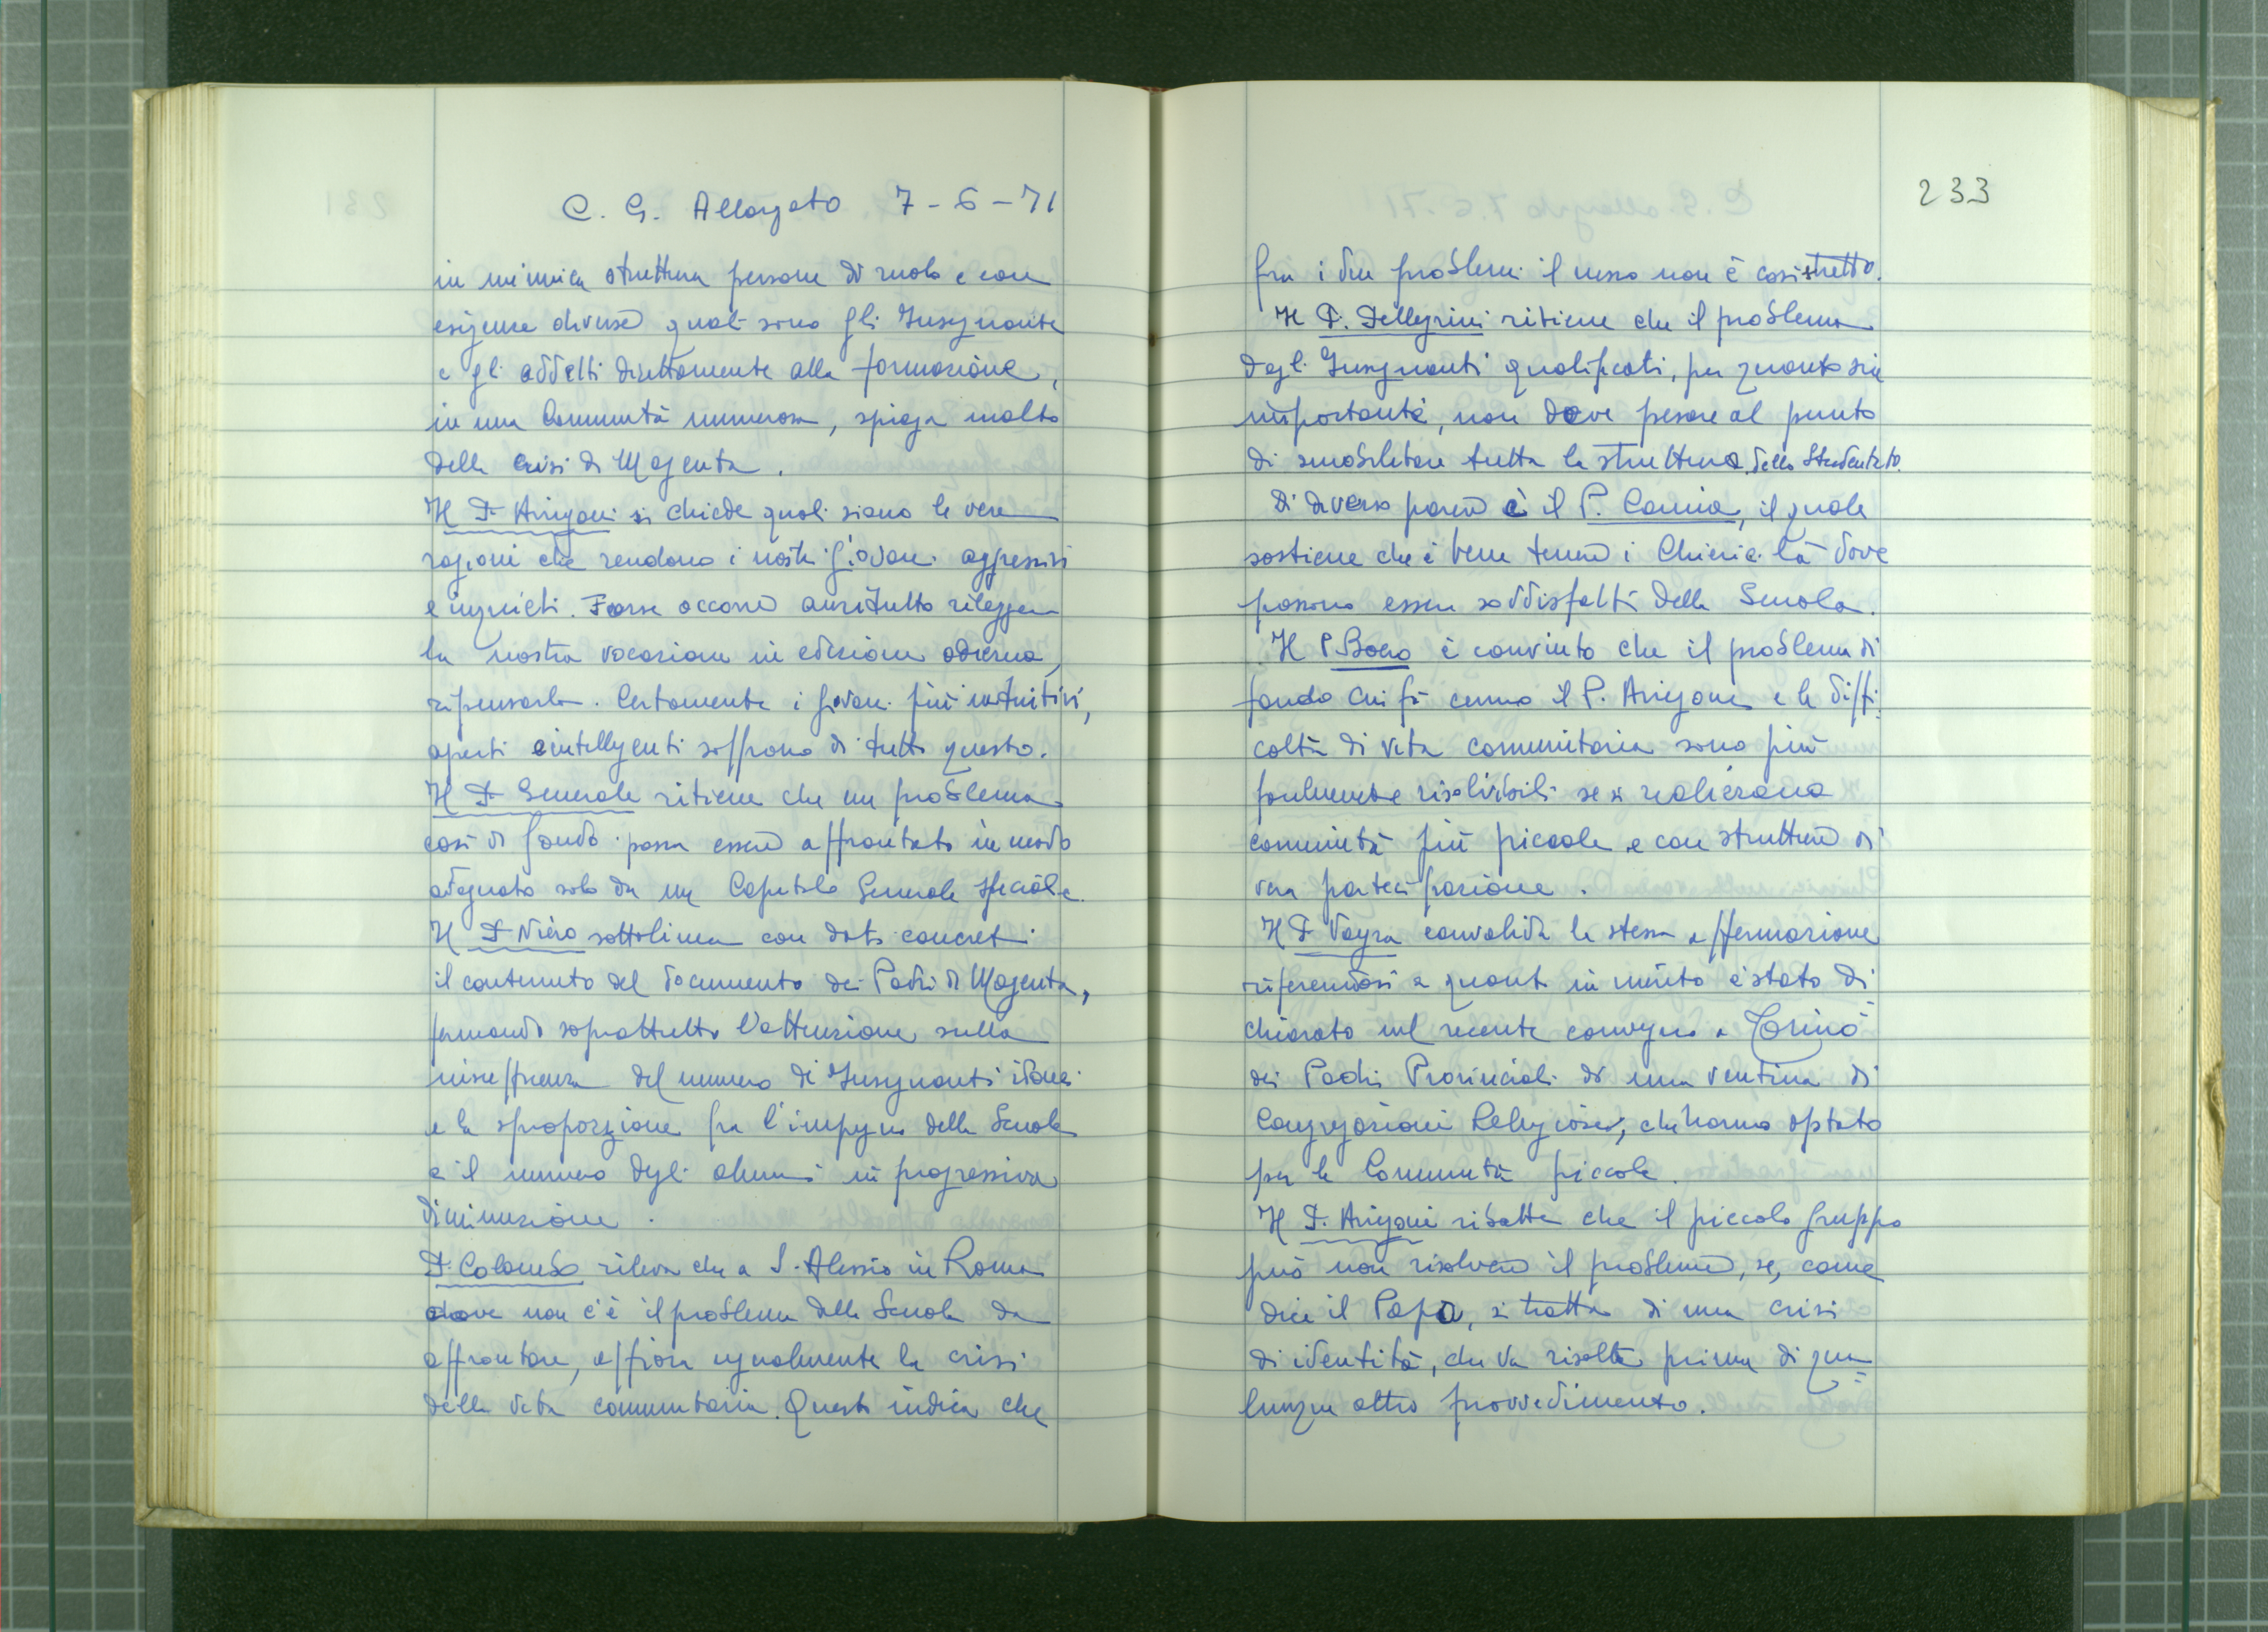 C. G. Allargato 7-6-71
in un'unica struttura persone di ruolo e con
esigenze diverse quali sono gli Insegnanti
e gli addetti direttamente alla formazione,
in una Comunità numerosa, spiega molto
della crisi di Magenta.
Il P. Arrigoni si chiede quali siano le vere
ragioni che rendono i nostri giovani aggressivi
e inquieti. Forse occorre anzitutto rileggere
la nostra vocazione in edizione odierna,
ripensarla. Certamente i giovani più intuitivi,
aperti e intelligenti soffrono di tutto questo.
Il P. Generale ritiene che un problema
così di fondo possa essere affrontato in modo
adeguato solo da un Capitolo Generale speciale.
Il P. Niero sottolinea con dati concreti
il contenuto del documento dei Padri di Magenta,
fermando soprattutto l'attenzione sulla
insufficienza del numero di Insegnanti idonei
e la sproporzione fra l'impegno della Scuola
e il numero degli alunni in progressiva
diminuzione.
P. Colombo rileva che a S. Alessio in Roma
dove non c'è il problema della Scuola da
affrontare, affiora egualmente la crisi
della vita comunitaria. Questo indica che
233
fra i due problemi il nesso non è così stretto.
Il P. Pellegrini ritiene che il problema
degli Insegnanti qualificati, per quanto sia
importante, non deve pesare al punto
di smobilitare tutta la struttura dello Studentato.
Di diverso parere è il P. Camia, il quale
sostiene che è bene tenere i Chierici là dove
possono essere soddisfatti della Scuola.
Il P. Boero è convinto che il problema di
fondo cui fà cenno il P. Arrigoni e le diffi-
coltà di vita comunitaria sono più
facilmente risolvibili se si realizzano
comunità più piccole e con strutture di
vera partecipazione.
Il P. Vayra convalida la stessa affermazione
riferendosi a quanto in merito è stato di-
chiarato nel recente convegno a Torino
dei Padri Provinciali di una ventina di
Congregazioni Religiose, che hanno optato
per le Comunità piccole.
Il P. Arrigoni ribatte che il piccolo gruppo
può non risolvere il problema, se, come
dice il Papa, si tratta di una crisi
di identità, che va risolta prima di qua-
lunque altro provvedimento.